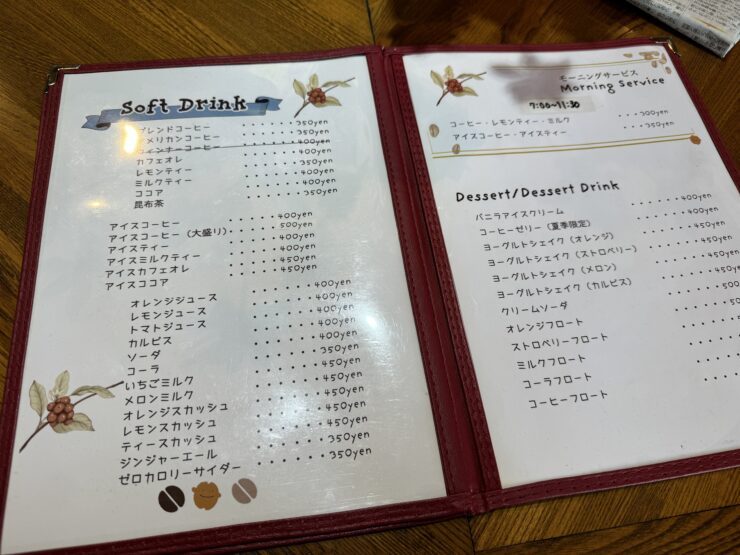 Soft Drink
ブレンドコーヒー ・・・・・・350yen
アメリカンコーヒー ・・・・・・350yen
ウィンナーコーヒー ・・・・・・400yen
カフェオレ ・・・・・・400yen
レモンティー ・・・・・・350yen
ミルクティー ・・・・・・400yen
ココア ・・・・・・400yen
昆布茶 ・・・・・・350yen
アイスコーヒー ・・・・・・400yen
アイスコーヒー（大盛り）・・・・・・500yen
アイスティー ・・・・・・400yen
アイスミルクティー ・・・・・・400yen
アイスカフェオレ ・・・・・・450yen
アイスココア ・・・・・・450yen
オレンジジュース ・・・・・・400yen
レモンジュース ・・・・・・400yen
トマトジュース ・・・・・・400yen
カルピス ・・・・・・400yen
ソーダ ・・・・・・400yen
コーラ ・・・・・・350yen
いちごミルク ・・・・・・450yen
メロンミルク ・・・・・・450yen
オレンジスカッシュ ・・・・・・450yen
レモンスカッシュ ・・・・・・450yen
ティースカッシュ ・・・・・・450yen
ジンジャーエール ・・・・・・350yen
ゼロカロリーサイダー ・・・・・・350yen
モーニングサービス
Morning Service
7:00~11:30
コーヒー・レモンティー・ミルク ・・・300yen
アイスコーヒー・アイスティー ・・・350yen
Dessert/Dessert Drink
バニラアイスクリーム ・・・・・・400yen
コーヒーゼリー（夏季限定） ・・・・・・400yen
ヨーグルトシェイク（オレンジ） ・・・・・・450yen
ヨーグルトシェイク（ストロベリー） ・・・・・・450yen
ヨーグルトシェイク（メロン） ・・・・・・450yen
ヨーグルトシェイク（カルピス） ・・・・・・450yen
クリームソーダ
オレンジフロート
ストロベリーフロート
ミルクフロート
コーラフロート
コーヒーフロート